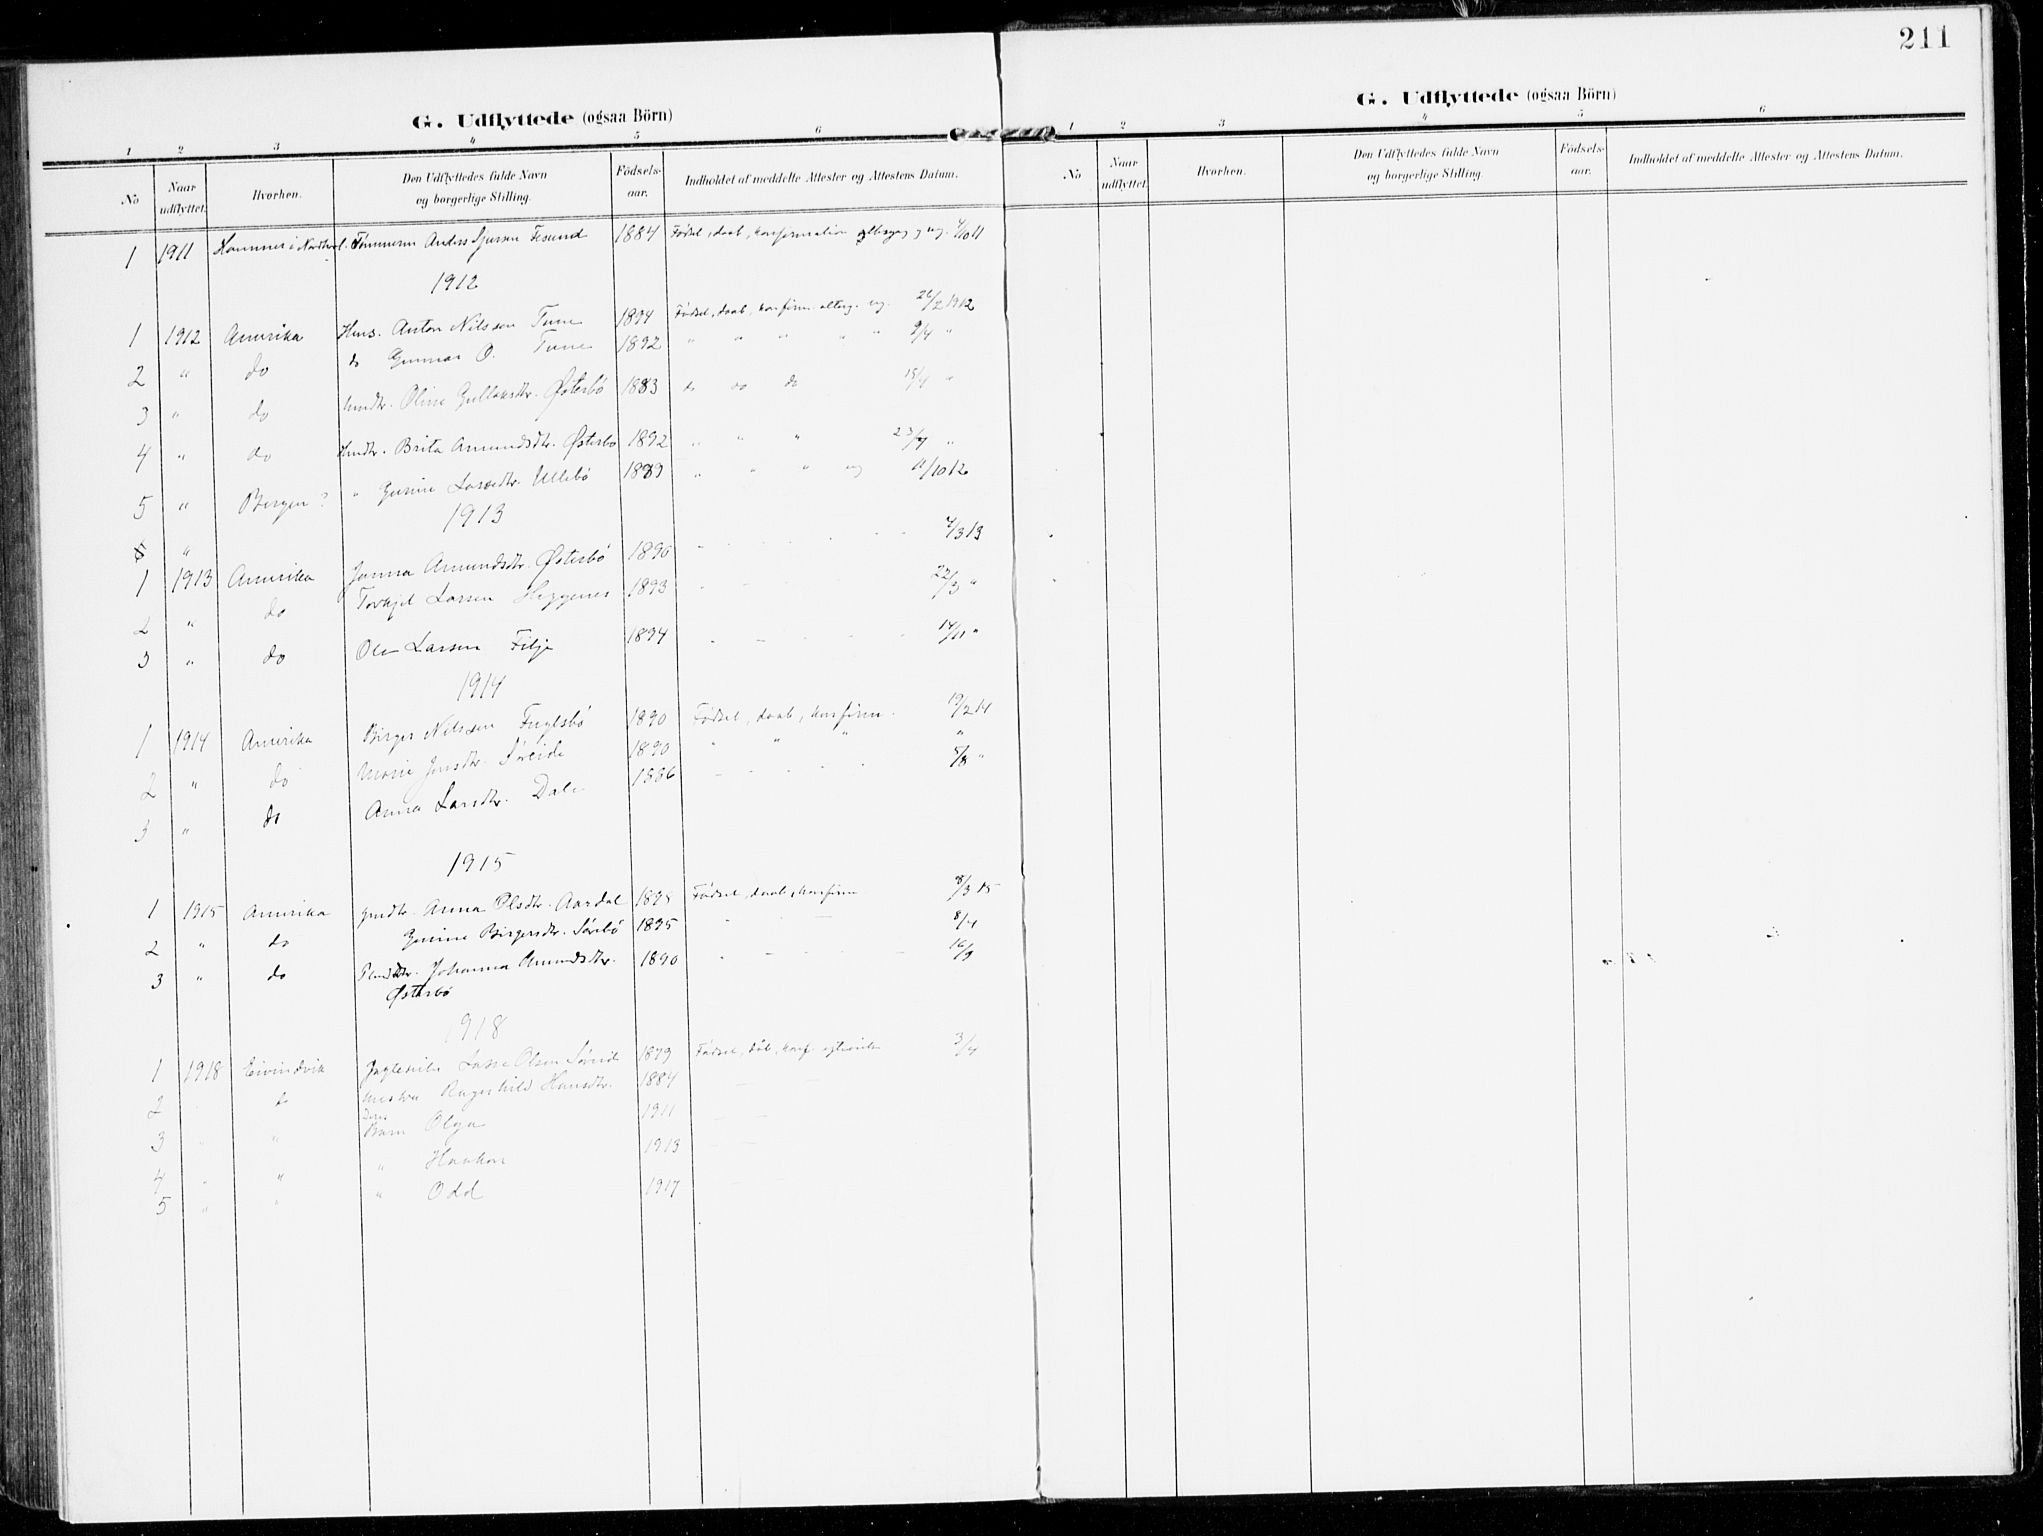 211
G. Udflyttede (ogsaa Börn)
1 2 3 4 5 6
No Naar udflyttet. Hvorhen. Den Udflyttedes fulde Navn og borgerlige Stilling. Födsels-aar. Indholdet af meddelte Attester og Attestens Datum.
1 1911 Hammer i Anders Sjursen 1884 Fødsel, daab, konfirmation 4/10 11
1912
1 1912 Amerika Anton Nilsson Tune 1894 Fødsel, daab, konfirm. alterg. ug. 26/2 1912
2 " do do Gunnar O. Tune 1892 " " " " " 9/4 "
3 " do Oline Gullaksdtr. Østerbö 1883 do do do 15/4 "
4 " do Brita Amundsdtr. Østerbö 1892 " " " 23/9 "
5 " Bergen? " Gurine Larsdtr. Ullebö 1889 " " " ug 11/10 12
1913
6 "
1 1913 Amerika Amundsdtr. Østerbö 1890 4/3 13
2 " do Larsen 1893 22/3 "
3 " do Ole Larsen Tilje 1894 14/11 "
1914
1 1914 Amerika Birger Nilsson Fuglsbö 1890 Fødsel, daab, konfirm. 19/2 14
2 " do Marie Jensdtr. Søreide 1890 " " " "
3 " do Anna Larsdtr. Dale 1886 5/8 "
1915
1 1915 Amerika Anna Olsdtr. Aardal 1895 Fødsel, daab, konfirm 8/3 15
2 " do Gurine Birgersdtr. Sörebö 1895 8/4
3 " do Johanna Amundsdtr. 1890 16/9
Østerbö
1918
1 1918 Eivindvik Lasse Olsen Søreide 1879 Fødsel, dåb, konf. 3/4
2 do Hustru Ragnhild Hansdtr. 1884
3 " " Deres Barn Olga 1911
4 " " " Haakon 1913
5 " " " Odd 1917
G. Udflyttede (ogsaa Börn)
1 2 3 4 5 6
No Naar udflyttet. Hvorhen. Den Udflyttedes fulde Navn og borgerlige Stilling. Födsels-aar. Indholdet af meddelte Attester og Attestens Datum.